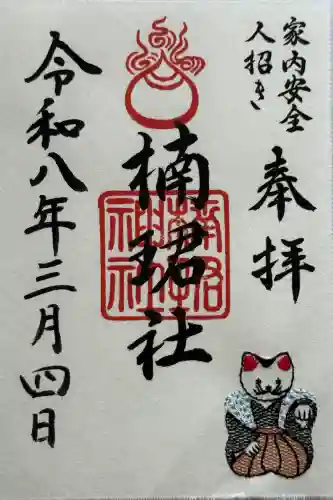 家内安全
人招き
奉拝
楠珺社
令和八年三月四日